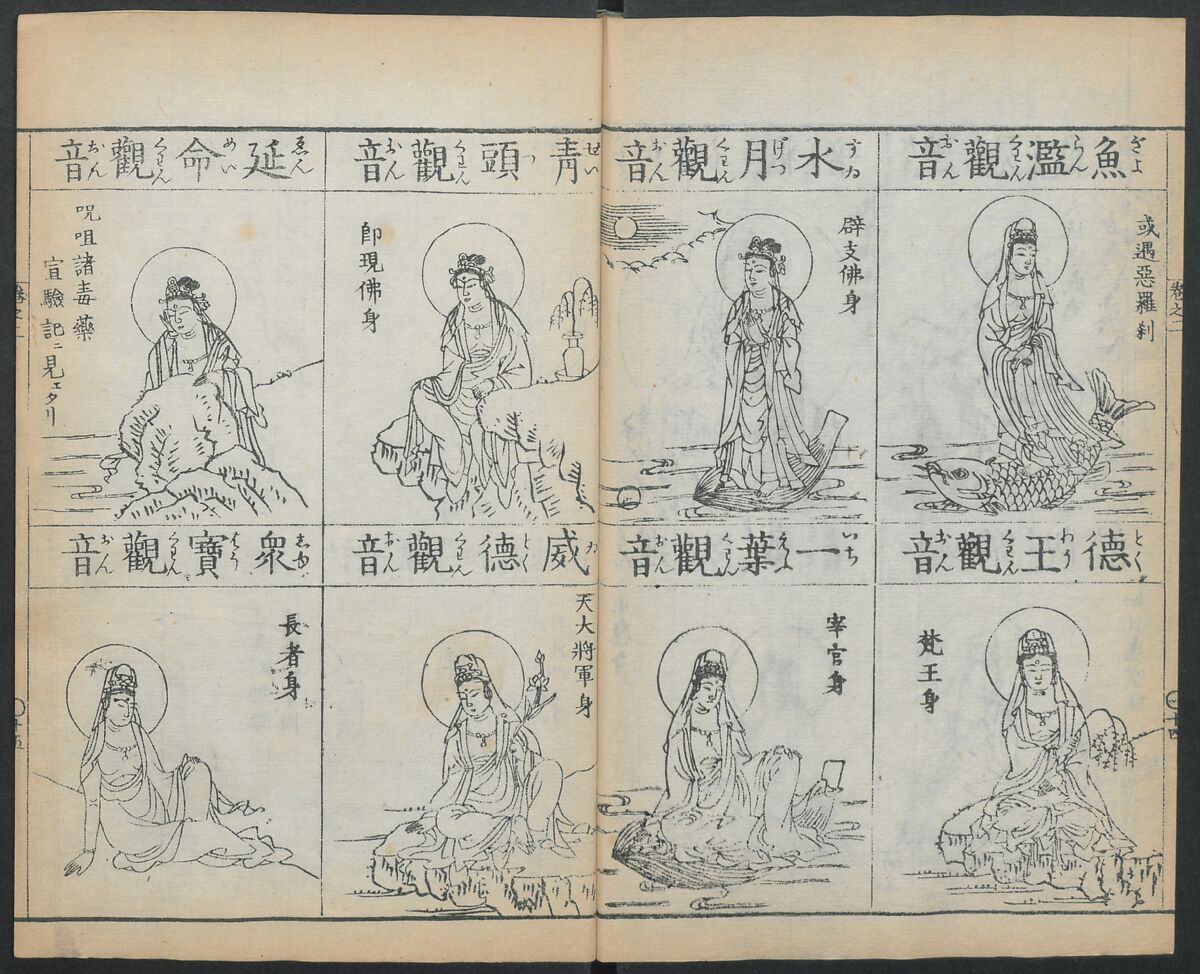 魚濫觀音
ぎよらんくわんおん
或遇惡羅刹
水月觀音
すゐげつくわんおん
辟支佛身
德王觀音
とくわうくわんおん
梵王身
一葉觀音
いちえふくわんおん
宰官身
卷之二
十四
青頭觀音
せいつくわんおん
卽現佛身
延命觀音
ゑんめいくわんおん
呪咀諸毒藥
宣驗記ニ見エタリ
威德觀音
ゐとくくわんおん
天大將軍身
衆寶觀音
しゆほうくわんおん
長者身
卷之二
十五